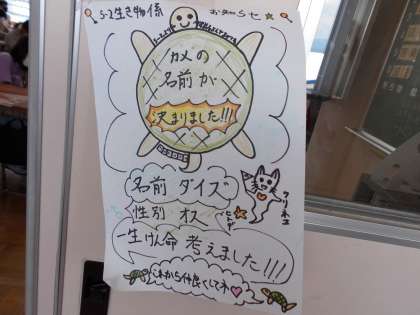 5-2生き物係
お知らせ
カメの
名前が
決まりました!!!
名前 ダイズ
クリネコ
性別 オス
ヒトデ
一生けん命 考えました!!!
これから仲良くしてネ